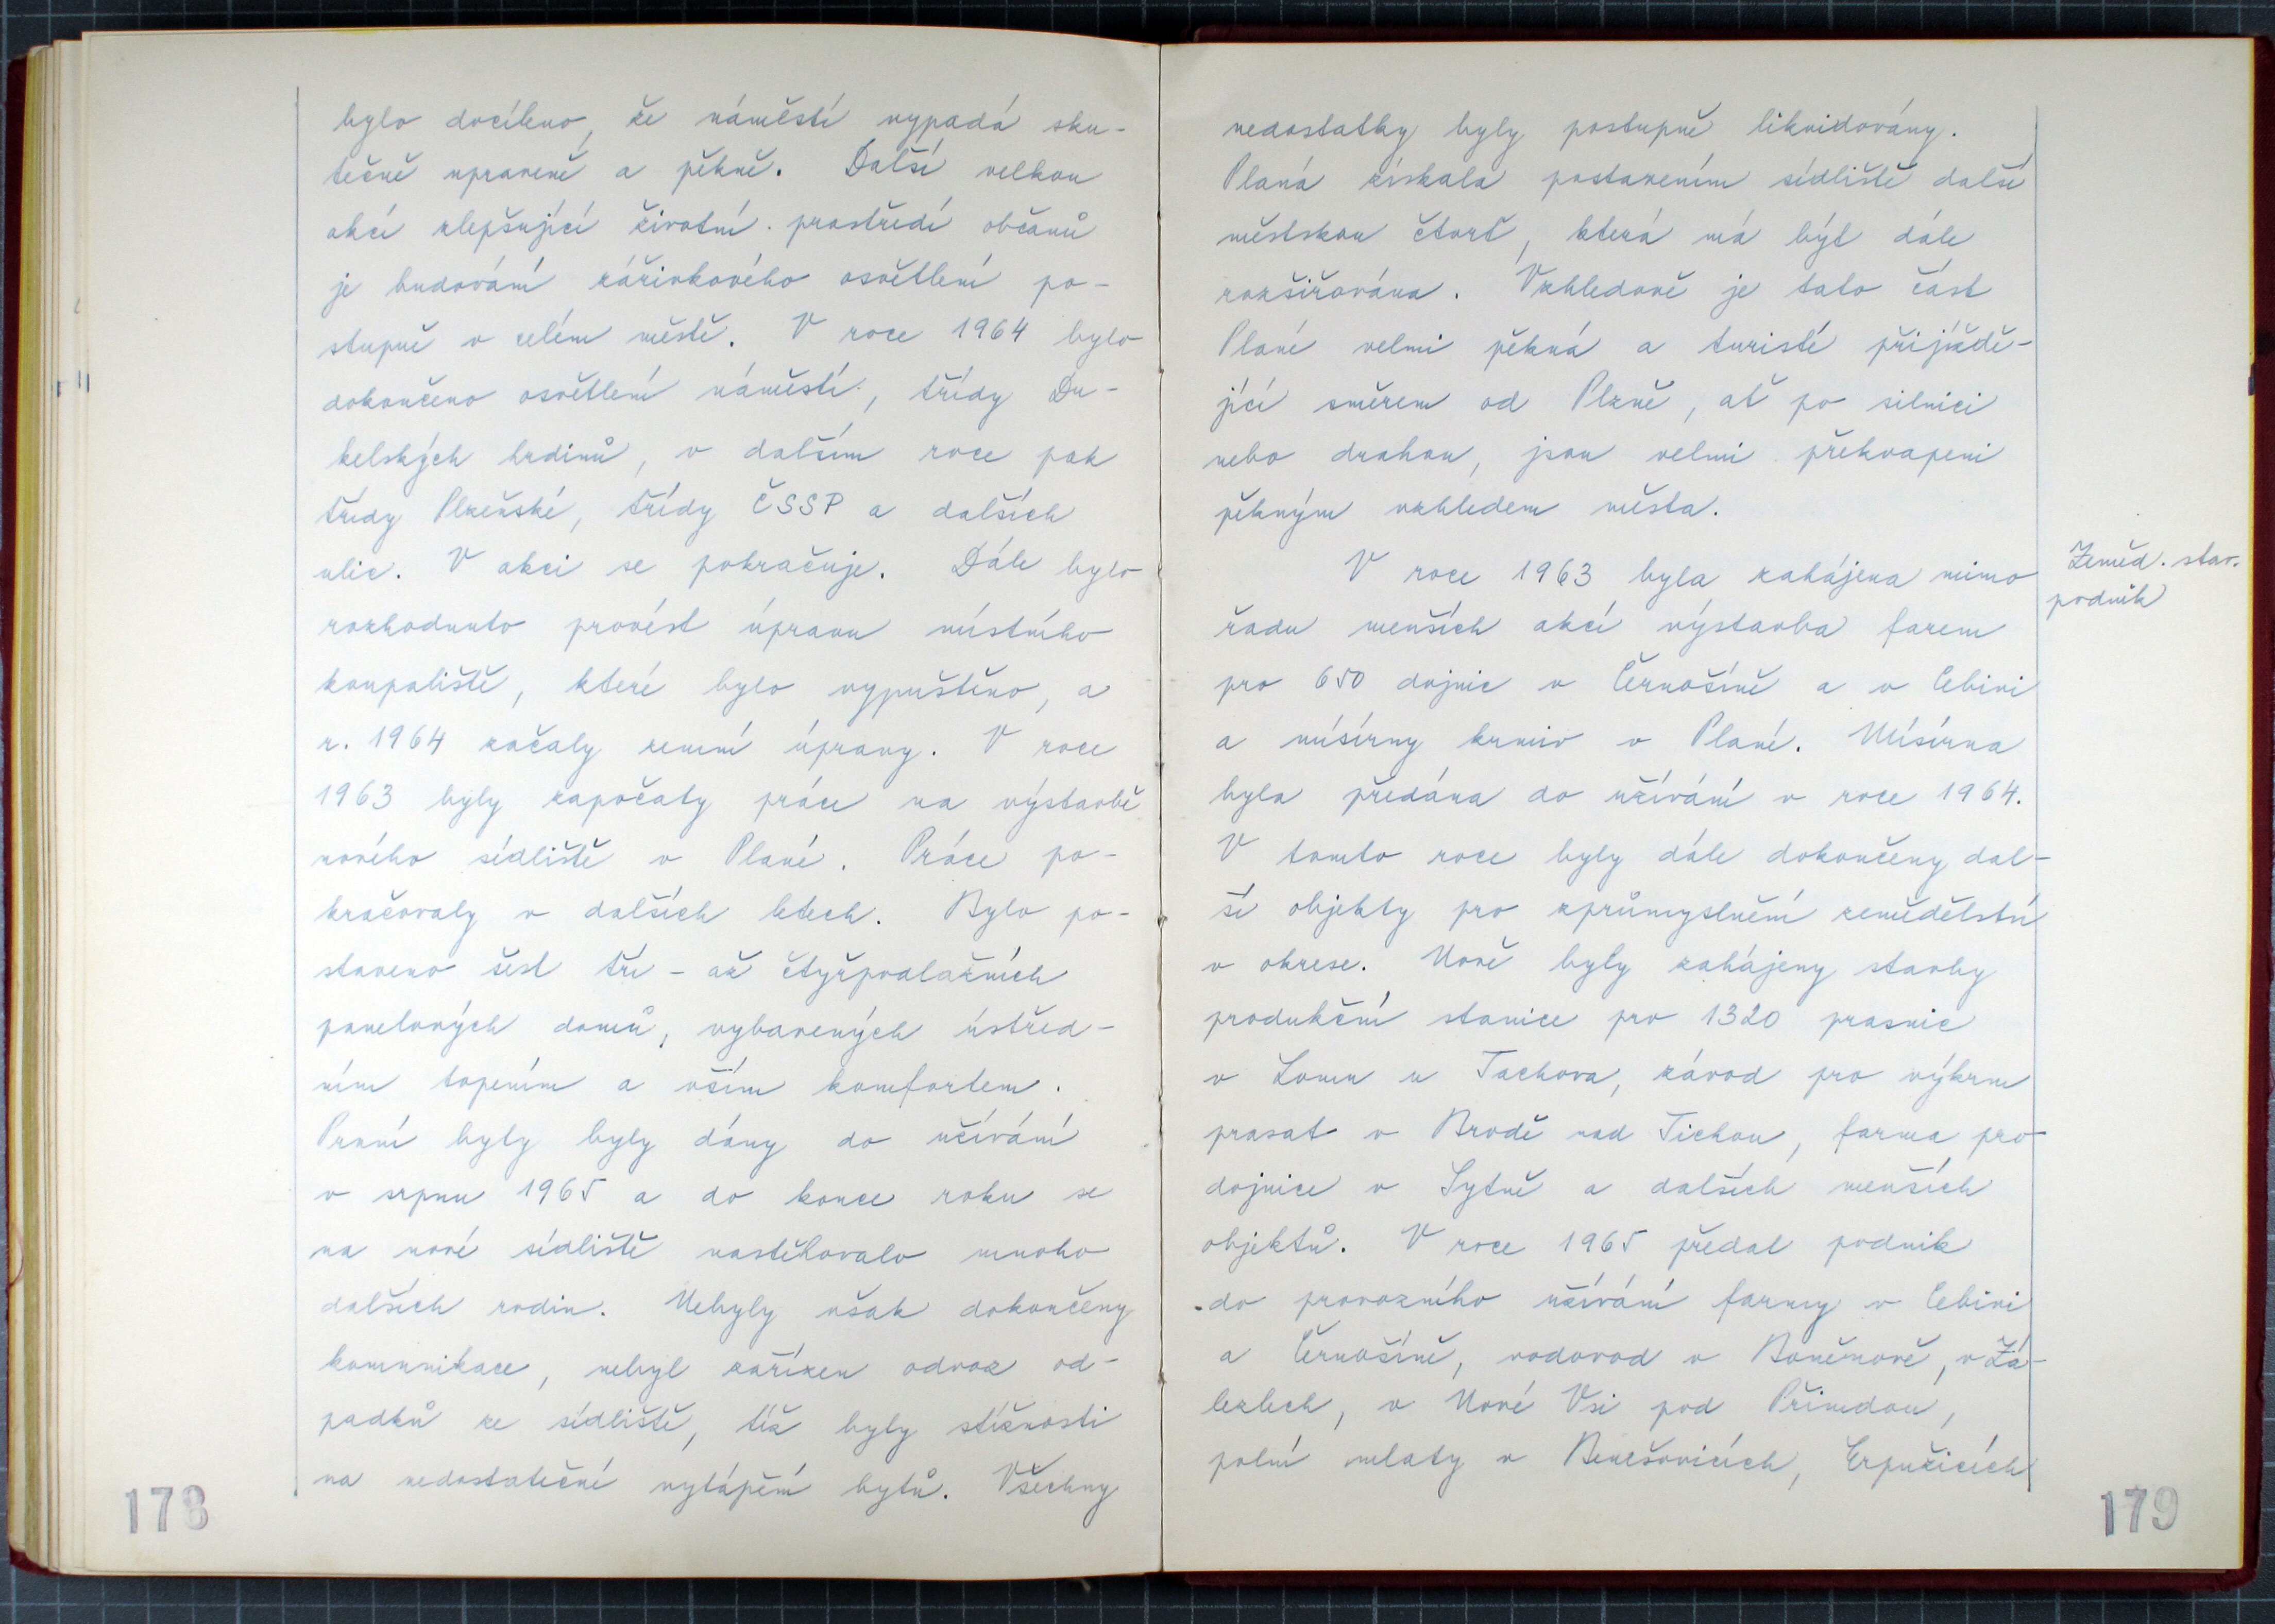 bylo docíleno, že náměstí vypadá sku-
tečně upraveně a pěkně. Další velkou
akcí zlepšující životní prostředí občanů
je budování zářivkového osvětlení po-
stupně v celém městě. V roce 1964 bylo
dokončeno osvětlení náměstí, třídy Du-
kelských hrdinů, v dalším roce pak
třídy Plzeňské, třídy ČSSP a dalších
ulic. V akci se pokračuje. Dále bylo
rozhodnuto provést úpravu místního
koupaliště, které bylo vypuštěno, a
r. 1964 začaly zemní úpravy. V roce
1963 byly započaty práce na výstavbě
nového sídliště v Plané. Práce po-
kračovaly v dalších letech. Bylo po-
staveno šest tří - až čtyřposlažních
panelových domů, vybavených ústřed-
ním topením a vším komfortem.
První byty byly dány do užívání
v srpnu 1965 a do konce roku se
na nové sídliště nastěhovalo mnoho
dalších rodin. Nebyly však dokončeny
komunikace, nebyl zařízen odvoz od-
padků ze sídliště, též byly stížnosti
na nedostatečné vytápění bytů. Všechny
178
nedostatky byly postupně likvidovány.
Planá získala postavením sídliště další
městskou čtvrť, která má být dále
rozšiřována. Vzhledově je tato část
Plané velmi pěkná a turisté přijíždě-
jící směrem od Plzně, ať po silnici
nebo drahou, jsou velmi překvapeni
pěkným vzhledem města.
Zeměd. stav.
podnik
V roce 1963 byla zahájena mimo
řadu menších akcí výstavba farem
pro 650 dojnic v Černošíně a v Cebivi
a mísírny krmiv v Plané. Mísírna
byla předána do užívání v roce 1964.
V tomto roce byly dále dokončeny dal-
ší objekty pro zprůmyslnění zemědělství
v okrese. Nově byly zahájeny stavby
produkční stanice pro 1320 prasnic
v Lomu u Tachova, závod pro výkrm
prasat v Brodě nad Tichou, farma pro
dojnice v Sytně a dalších menších
objektů. V roce 1965 předal podnik
do provozního užívání farmy v Cebivi
a Černošíně, vodovod v Boněnově, v Zá-
lezlech, v Nové Vsi pod Přimdou,
polní mlaty v Benešovicích, Erpužicích
179